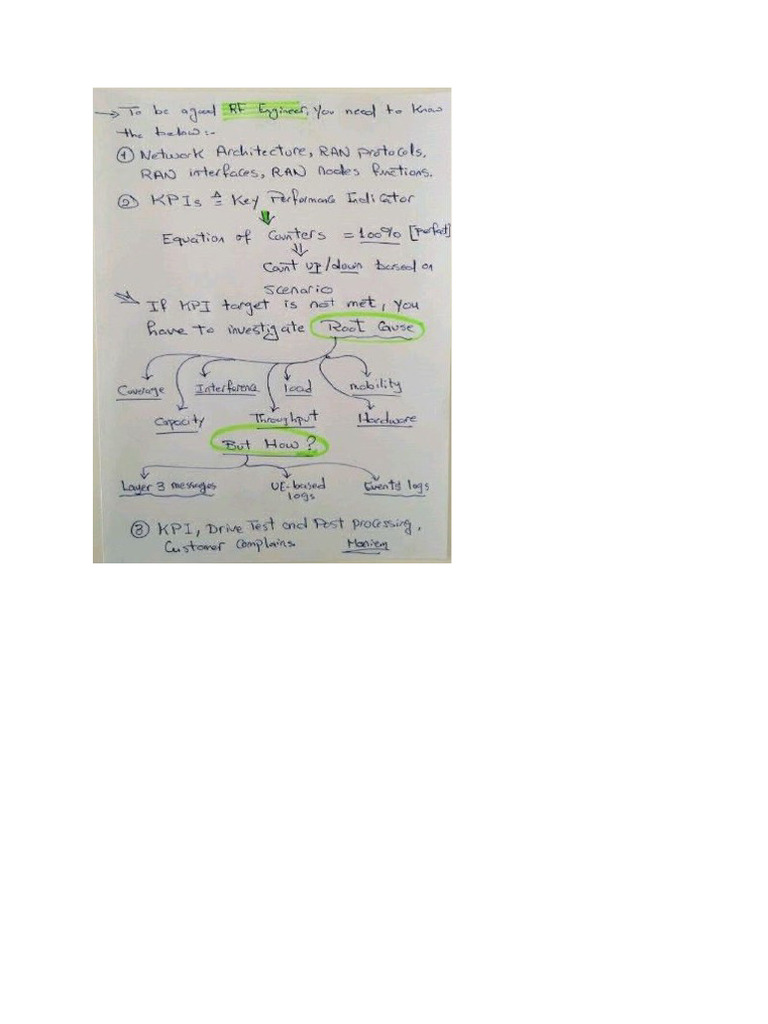 → To be a good RF Engineer, you need to know
the below:-
① Network Architecture, RAN protocols,
RAN interfaces, RAN nodes functions.
② KPIs ≜ Key Performance Indicator
Equation of Counters = 100% [perfect]
Count up/down based on
scenario
If KPI target is not met, you
have to investigate Root Cause
Coverage Interference load mobility
Capacity Throughput Hardware
But How?
Layer 3 messages UE-based logs Events logs
③ KPI, Drive Test and Post processing,
Customer Complains.